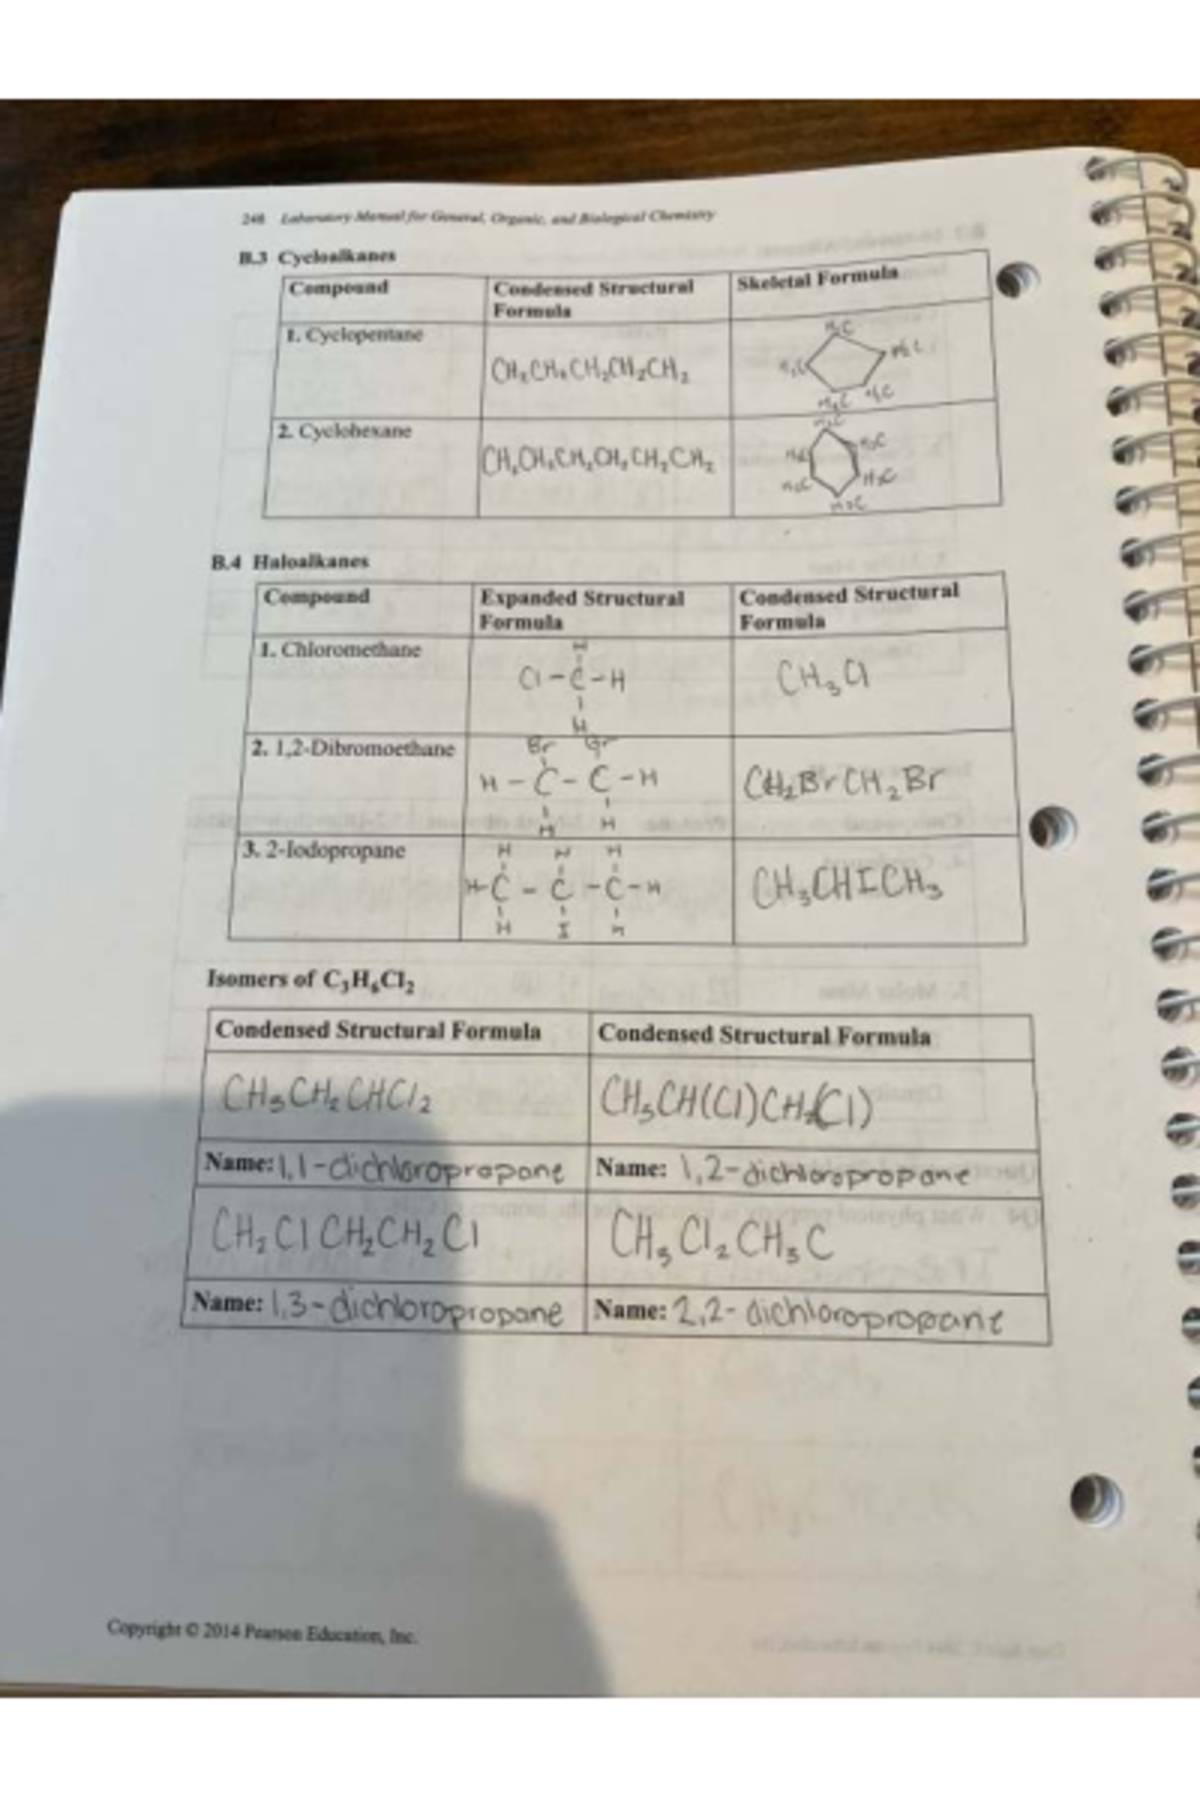 248 Laboratory Manual for General, Organic, and Biological Chemistry
B.3 Cycloalkanes
Compound
Condensed Structural
Formula
Skeletal Formula
1. Cyclopentane
CH₂CH₂CH₂CH₂CH₂
H₂C
H₂C
H₂C
H₂C H₂C
2. Cyclohexane
CH₂CH₂CH₂CH₂CH₂CH₂
H₂C
H₂C
H₂C
H₂C
H₂C
H₂C
B.4 Haloalkanes
Compound
Expanded Structural
Formula
Condensed Structural
Formula
1. Chloromethane
H
Cl-C-H
H
CH₃Cl
2. 1,2-Dibromoethane
Br Br
H-C-C-H
H H
CH₂BrCH₂Br
3. 2-Iodopropane
H H H
H-C-C-C-H
H I H
CH₃CHICH₃
Isomers of C₃H₆Cl₂
Condensed Structural Formula
Condensed Structural Formula
CH₃CH₂CHCl₂
CH₃CH(Cl)CH₂(Cl)
Name: 1,1-dichloropropane
Name: 1,2-dichloropropane
CH₂ClCH₂CH₂Cl
CH₃Cl₂CH₃C
Name: 1,3-dichloropropane
Name: 2,2-dichloropropane
Copyright © 2014 Pearson Education, Inc.